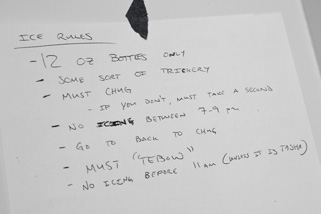 ICE RULES
- 12 OZ BOTTLES ONLY
- SOME SORT OF TRICKERY
- MUST CHUG
- IF YOU DON'T, MUST TAKE A SECOND
- NO ICING BETWEEN 7-9 PM
- GO TO BACK TO CHUG
- MUST "TEBOW"
- NO ICING BEFORE 11 AM (UNLESS IT IS